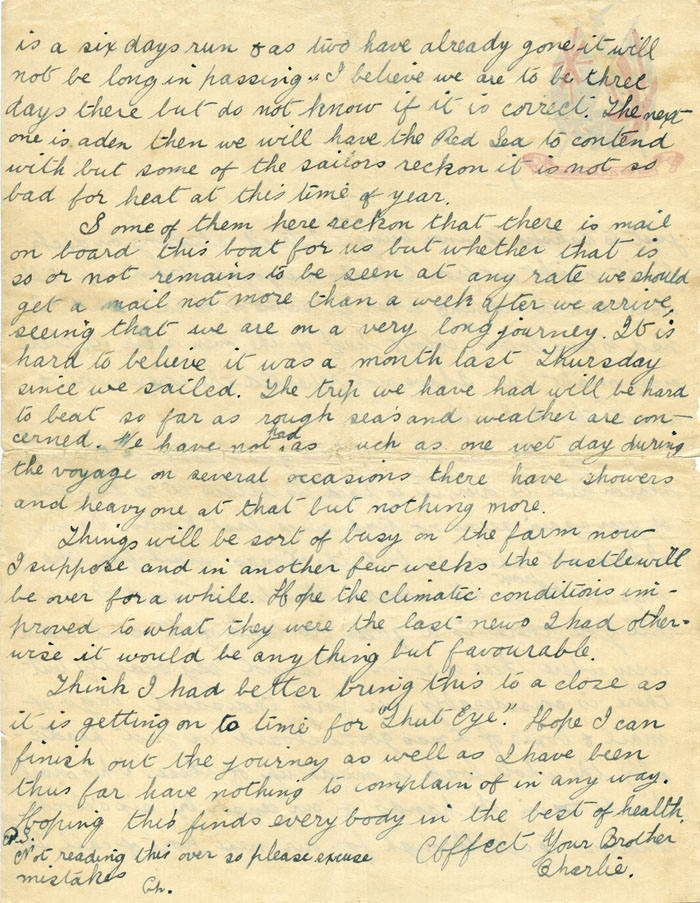 is a six days run & as two have already gone it will
not be long in passing. I believe we are to be three
days there but do not know if it is correct. The next
one is aden then we will have the Red Sea to contend
with but some of the sailors reckon it is not so
bad for heat at this time of year.
Some of them here reckon that there is mail
on board this boat for us but whether that is
so or not remains to be seen at any rate we should
get a mail not more than a week after we arrive,
seeing that we are on a very long journey. It is
hard to believe it was a month last Thursday
since we sailed. The trip we have had will be hard
to beat so far as rough seas and weather are con-
cerned. We have not had as uch as one wet day during
the voyage on several occasions there have showers
and heavy one at that but nothing more.
Things will be sort of busy on the farm now
I suppose and in another few weeks the bustle will
be over for a while. Hope the climatic conditions im-
proved to what they were the last news I had other-
wise it would be anything but favourable.
Think I had better bring this to a close as
it is getting on to time for "Shut Eye". Hope I can
finish out the journey as well as I have been
thus far have nothing to complain of in any way.
Hoping this finds everybody in the best of health.
Your Brother
Charlie.
P.S.
Not reading this over so please excuse
mistakes Ch.